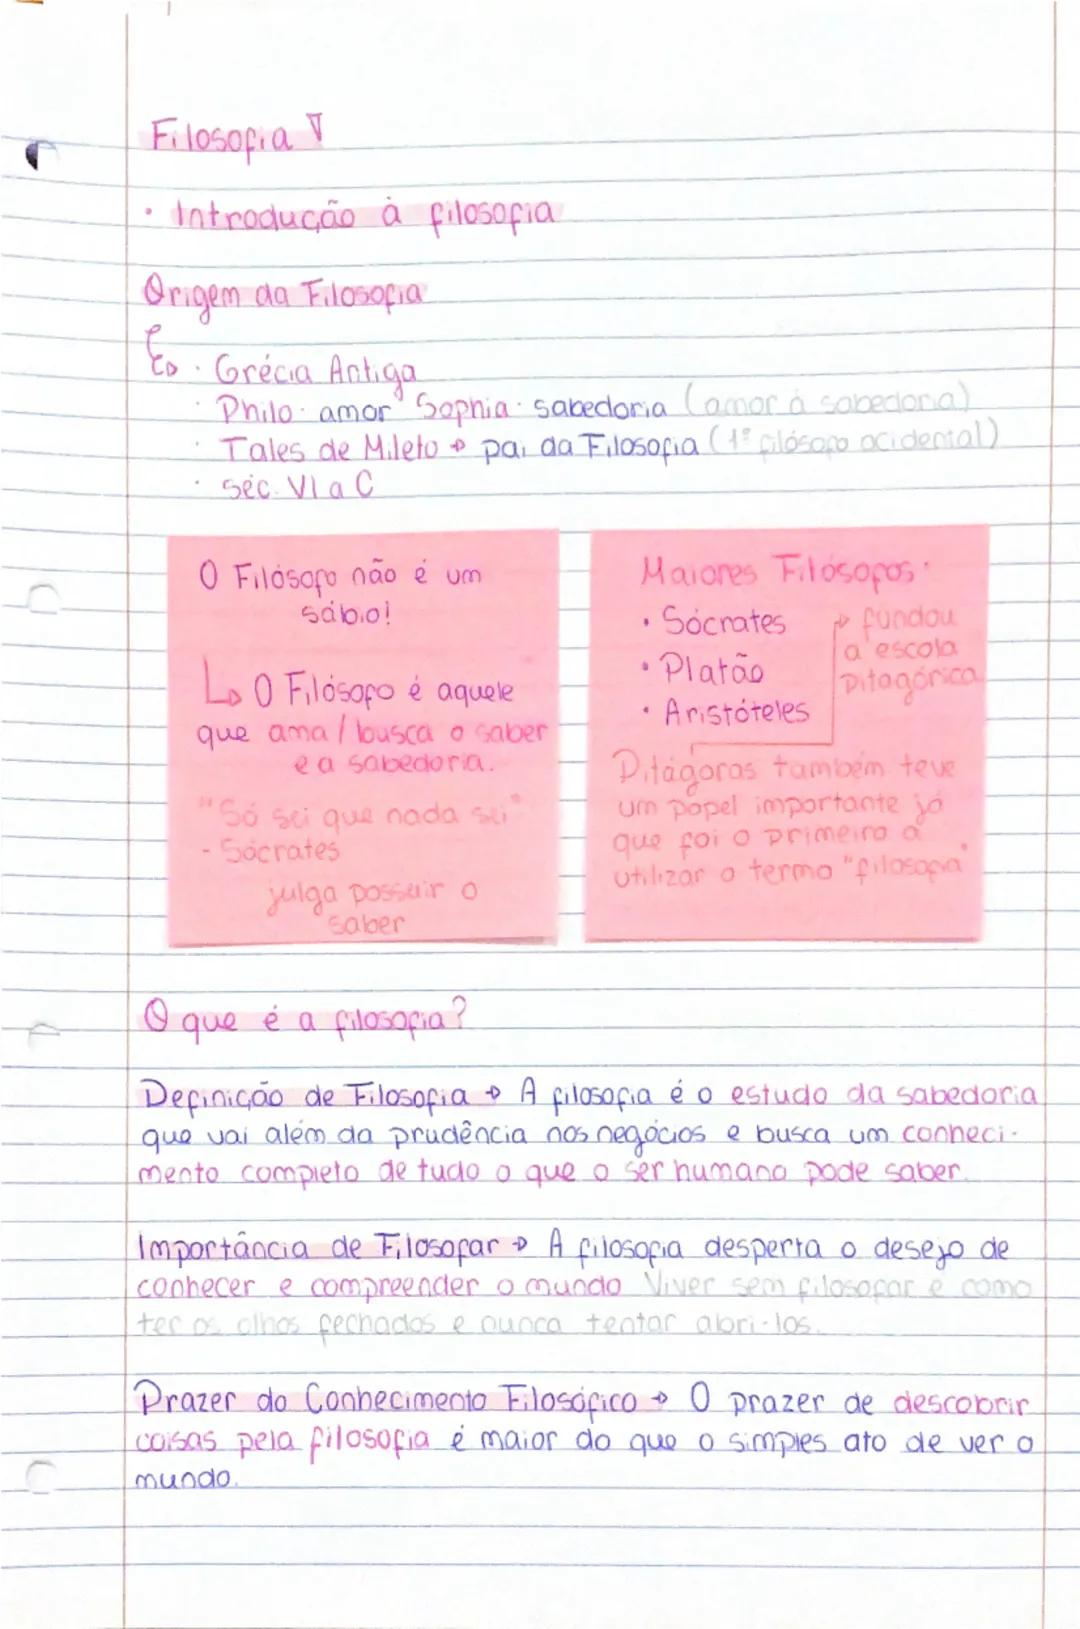 Filosofia
• Introdução à filosofia
Origem da Filosofia
· Grécia Antiga
· Philo · amor Sophia · sabedoria (amor à sabedoria)
· Tales de Mileto → pai da Filosofia (1º filósofo ocidental)
· séc. VI a C
O Filósofo não é um
sábio!
↳ O Filósofo é aquele
que ama / busca o saber
e a sabedoria.
"Só sei que nada sei"
- Sócrates
julga possuir o
saber
Maiores Filósofos:
• Sócrates
• Platão
• Aristóteles
→ fundou
a escola
pitagórica
Pitágoras também teve
um papel importante já
que foi o primeiro a
utilizar o termo "filosofia"
O que é a filosofia?
Definição de Filosofia → A filosofia é o estudo da sabedoria
que vai além da prudência nos negócios e busca um conheci-
mento completo de tudo o que o ser humano pode saber.
Importância de Filosofar → A filosofia desperta o desejo de
conhecer e compreender o mundo. Viver sem filosofar é como
ter os olhos fechados e nunca tentar abri-los.
Prazer do Conhecimento Filosófico → O prazer de descobrir
coisas pela filosofia é maior do que o simples ato de ver o
mundo.